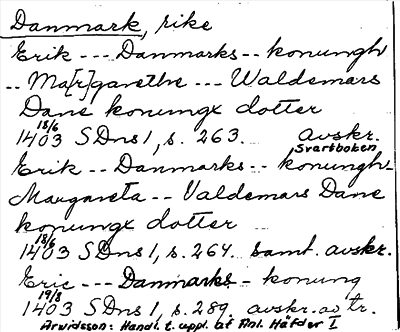 Danmark, rike
Erik --- Danmarks -- konungh
-- Ma[r]garethe --- Waldemars
Dane konungx dotter
18/6
1403 SDns 1, s. 263. avskr.
Svartboken
Erik -- Danmarks -- konungh-
Margareta -- Valdemars Dane
konungx dotter
18/6
1403 SDns 1, s. 264. samt. avskr.
Eric --- Danmarks - konung
19/8
1403 SDns 1, s. 289. avskr. av tr.
Arvidsson: Handl. t. uppl. af Finl. Häfder I